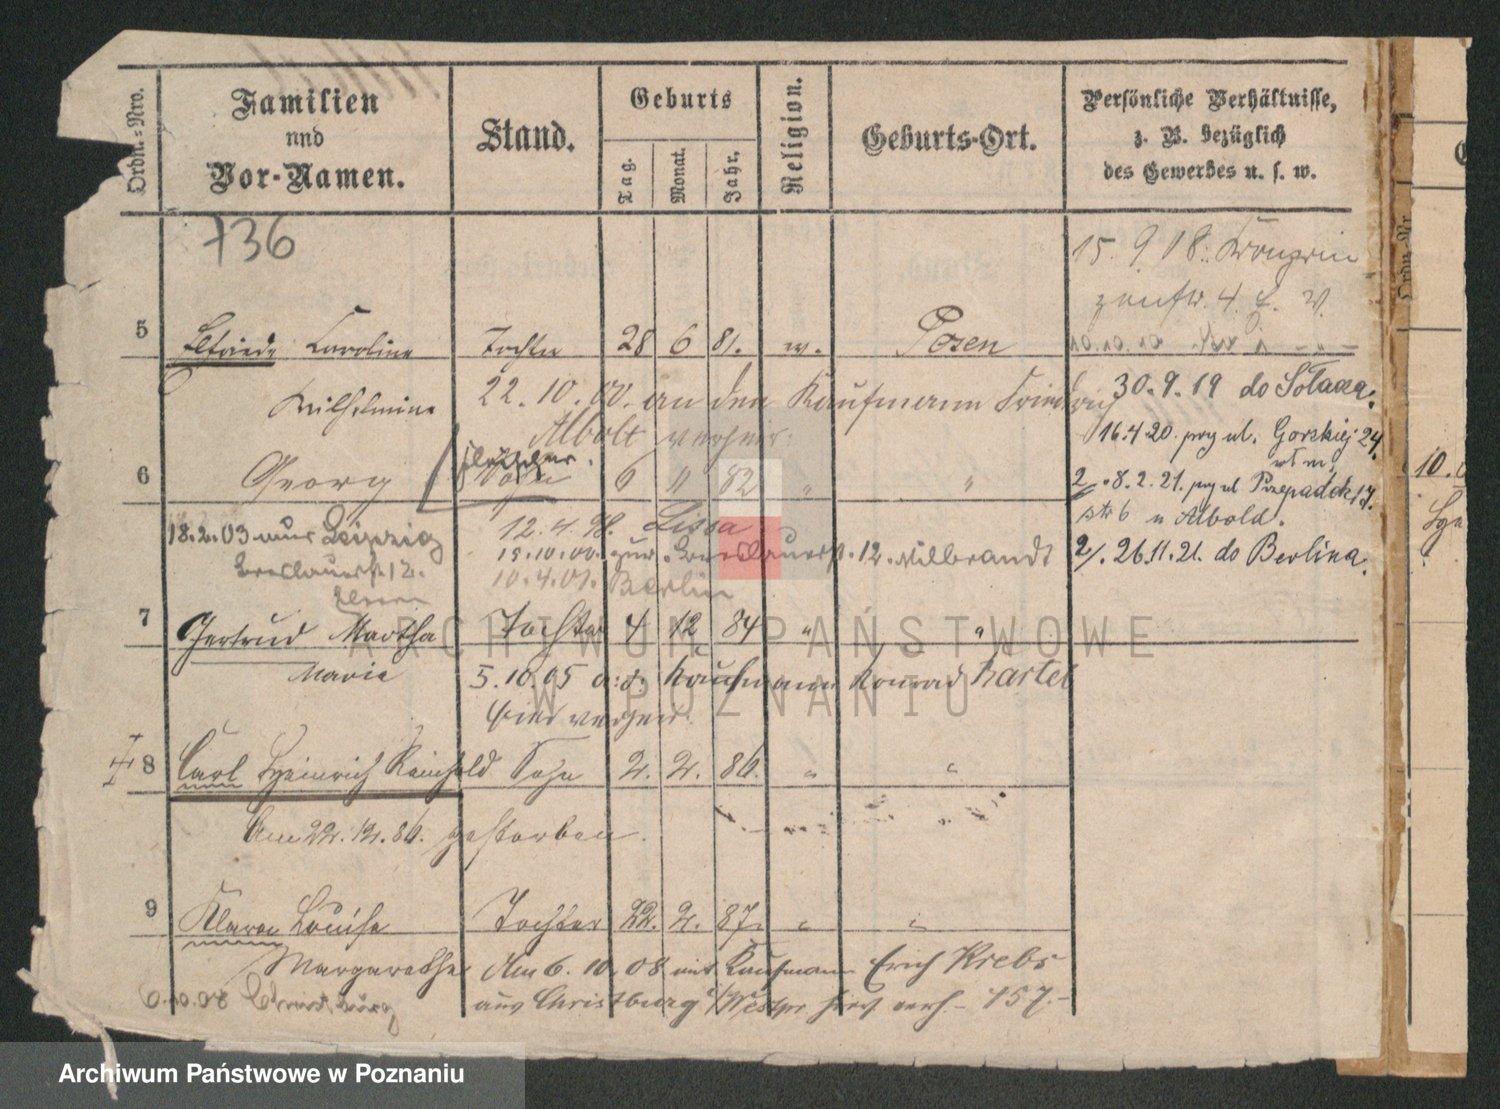 Ordn.-Nro.
Familien
und
Vor-Namen.
Stand.
Geburts
Tag.
Monat.
Jahr.
Religion.
Geburts-Ort.
Persönliche Verhältnisse,
z. B. bezüglich
des Gewerbes u. s. w.
736
15. 9. 18.
4.
5 Elfriede Caroline Tochter 28 6 81. ev. Posen
10.10.10
Wilhelmine 22. 10. 00. an den Kaufmann Friedrich
30. 9. 19 do Sołacza.
Albolt verheir.
16.4 20. przy ul. Gorskiej 24.
6 Georg Sohn 6 " 82 " "
2. 8. 2. 21. przy ul Przepadek 17.
u Albold.
18.2.03 nur Leipzig 12. 4. 98. Lissa
15.10.00. zur. Breslauerst. 12. Wilbrandt
2/. 26.11.21. do Berlina.
Breslauerst 12. 10. 4. 01. Berlin
Eltern
7 Gertrud Martha Tochter 4 12 84 " "
Marie 5. 10. 05 a. d. Kaufmann Konrad Bartel
hier verheir.
8 Carl Heinrich Reinhold Sohn 2. 2. 86. " "
Am 22. 12. 86. gestorben.
9 Klara Louise Tochter 22. 2. 87. " "
Margarethe Am 6. 10. 08 mit Kaufmann Erich Krebs
6.10.08 Christburg aus Christburg /Westpr hier verh. - 157. -
Ordn.-Nr
10.
ARCHIWUM PAŃSTWOWE
W POZNANIU
Archiwum Państwowe w Poznaniu